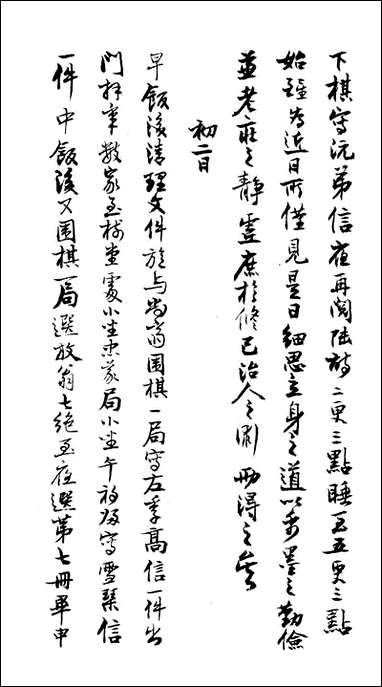 下棋寫沅弟信夜再閱陸詩二更三點睡至五更三點
始醒為近日所僅見是日細思立身之道以禹墨之勤儉
兼老莊之靜虛庶於修己治人之術兩得之矣
初二日
早飯後清理文件旋與尚齋圍棋一局寫左季高信一件出
門拜客數家至樹堂處小坐忠義局小坐午初歸寫雪琴信
一件中飯後又圍棋一局選放翁七絕至夜選第七冊畢申